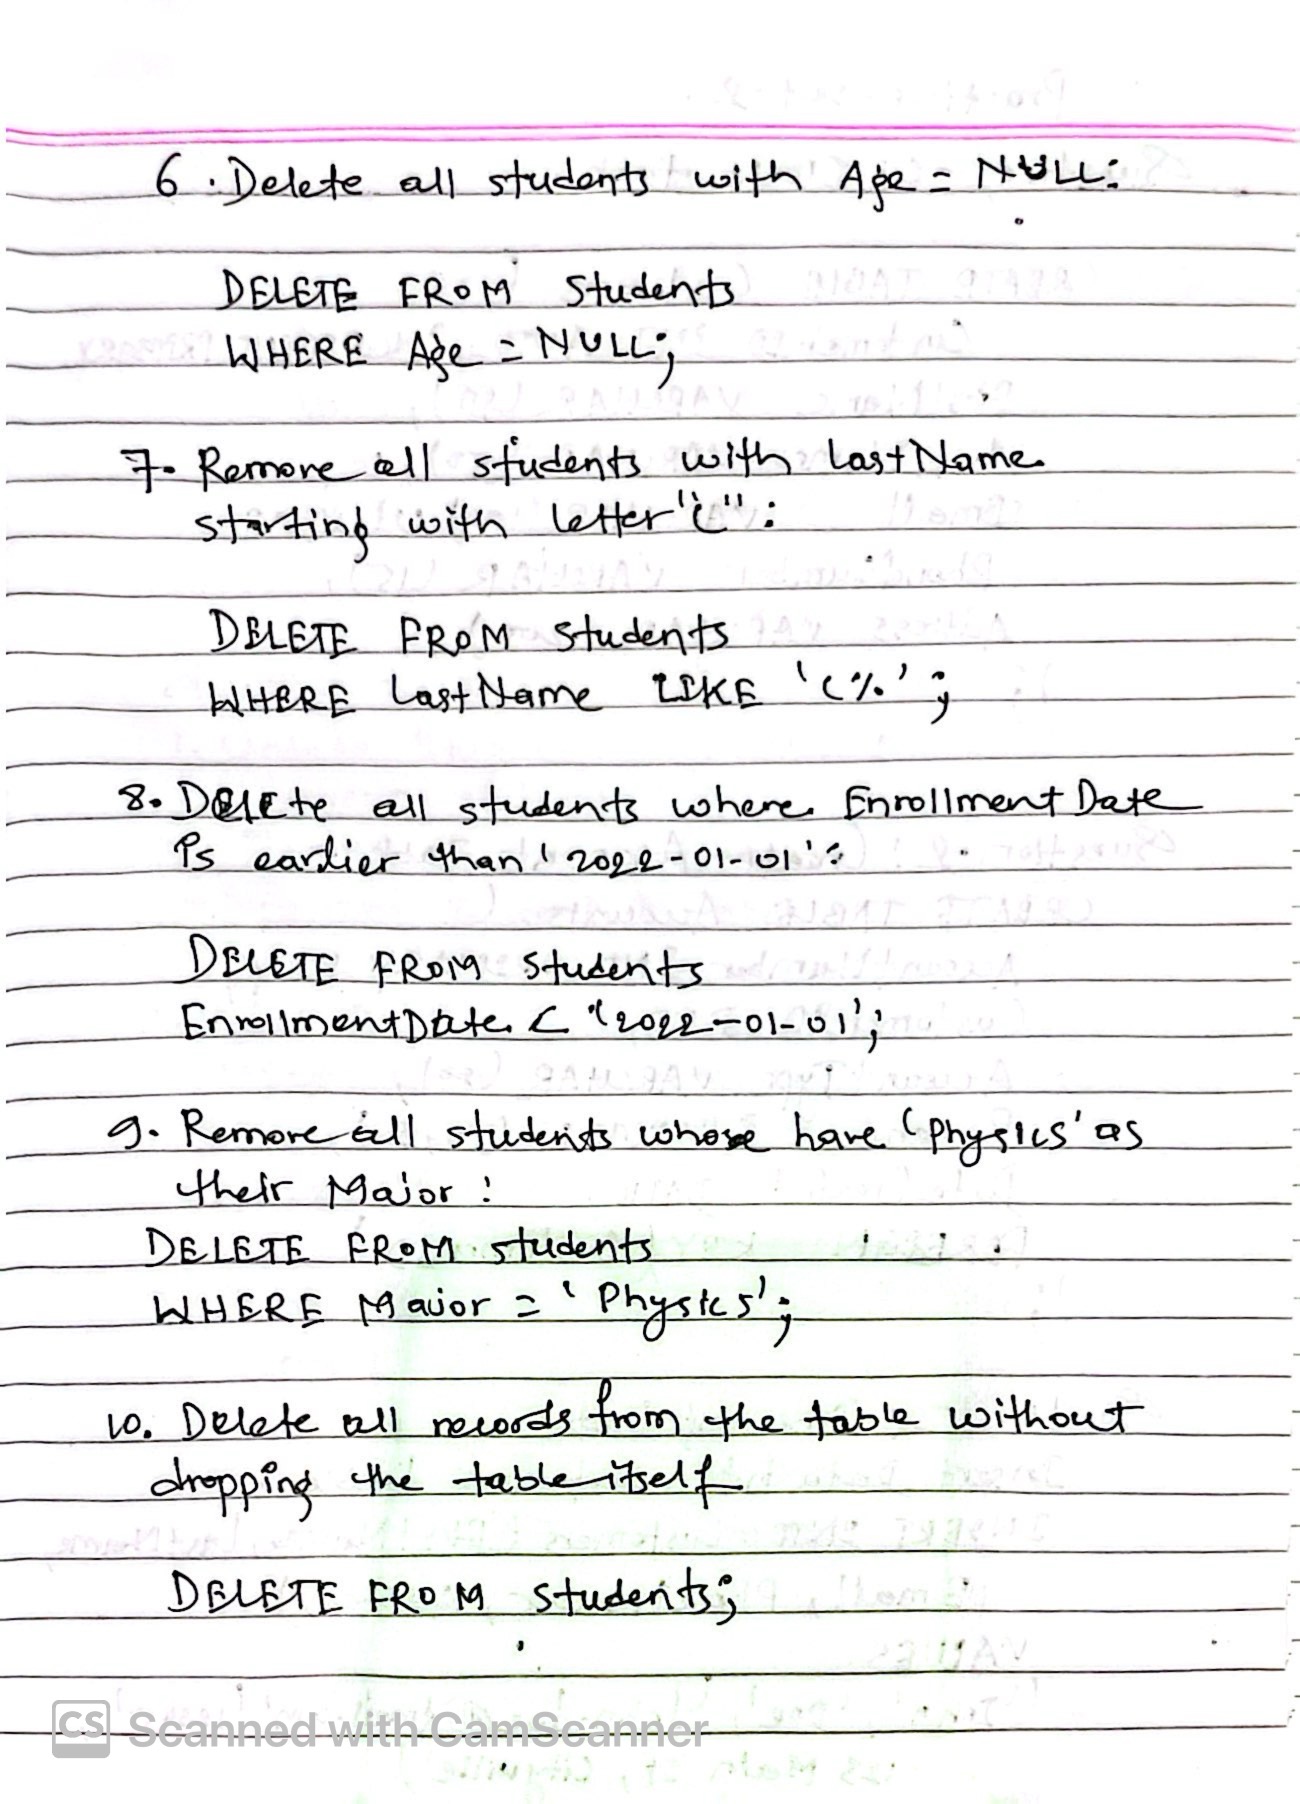 6. Delete all students with Age = NULL:
DELETE FROM Students
WHERE Age = NULL;
7. Remove all students with LastName
starting with letter "C":
DELETE FROM Students
WHERE LastName LIKE 'C%';
8. Delete all students where EnrollmentDate
is earlier than '2022-01-01':
DELETE FROM Students
EnrollmentDate < '2022-01-01';
9. Remove all students whose have 'Physics' as
their Major:
DELETE FROM students
WHERE Major = 'Physics';
10. Delete all records from the table without
dropping the table itself
DELETE FROM students;
CS Scanned with CamScanner